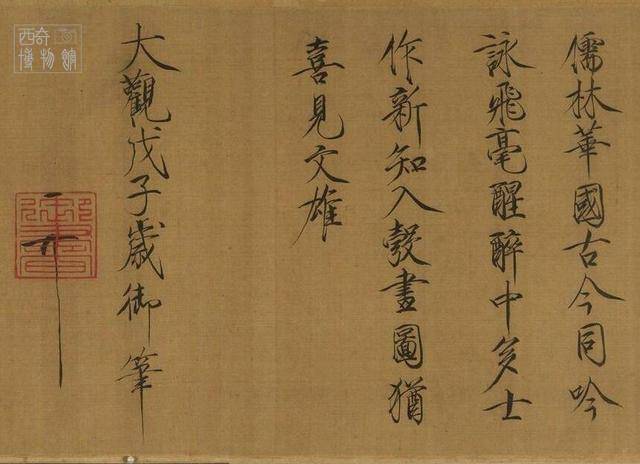 儒林華國古今同吟
詠飛毫醒醉中多士
作新知入彀畫圖猶
喜見文雄
大觀戊子歲御筆
西奇
博物館